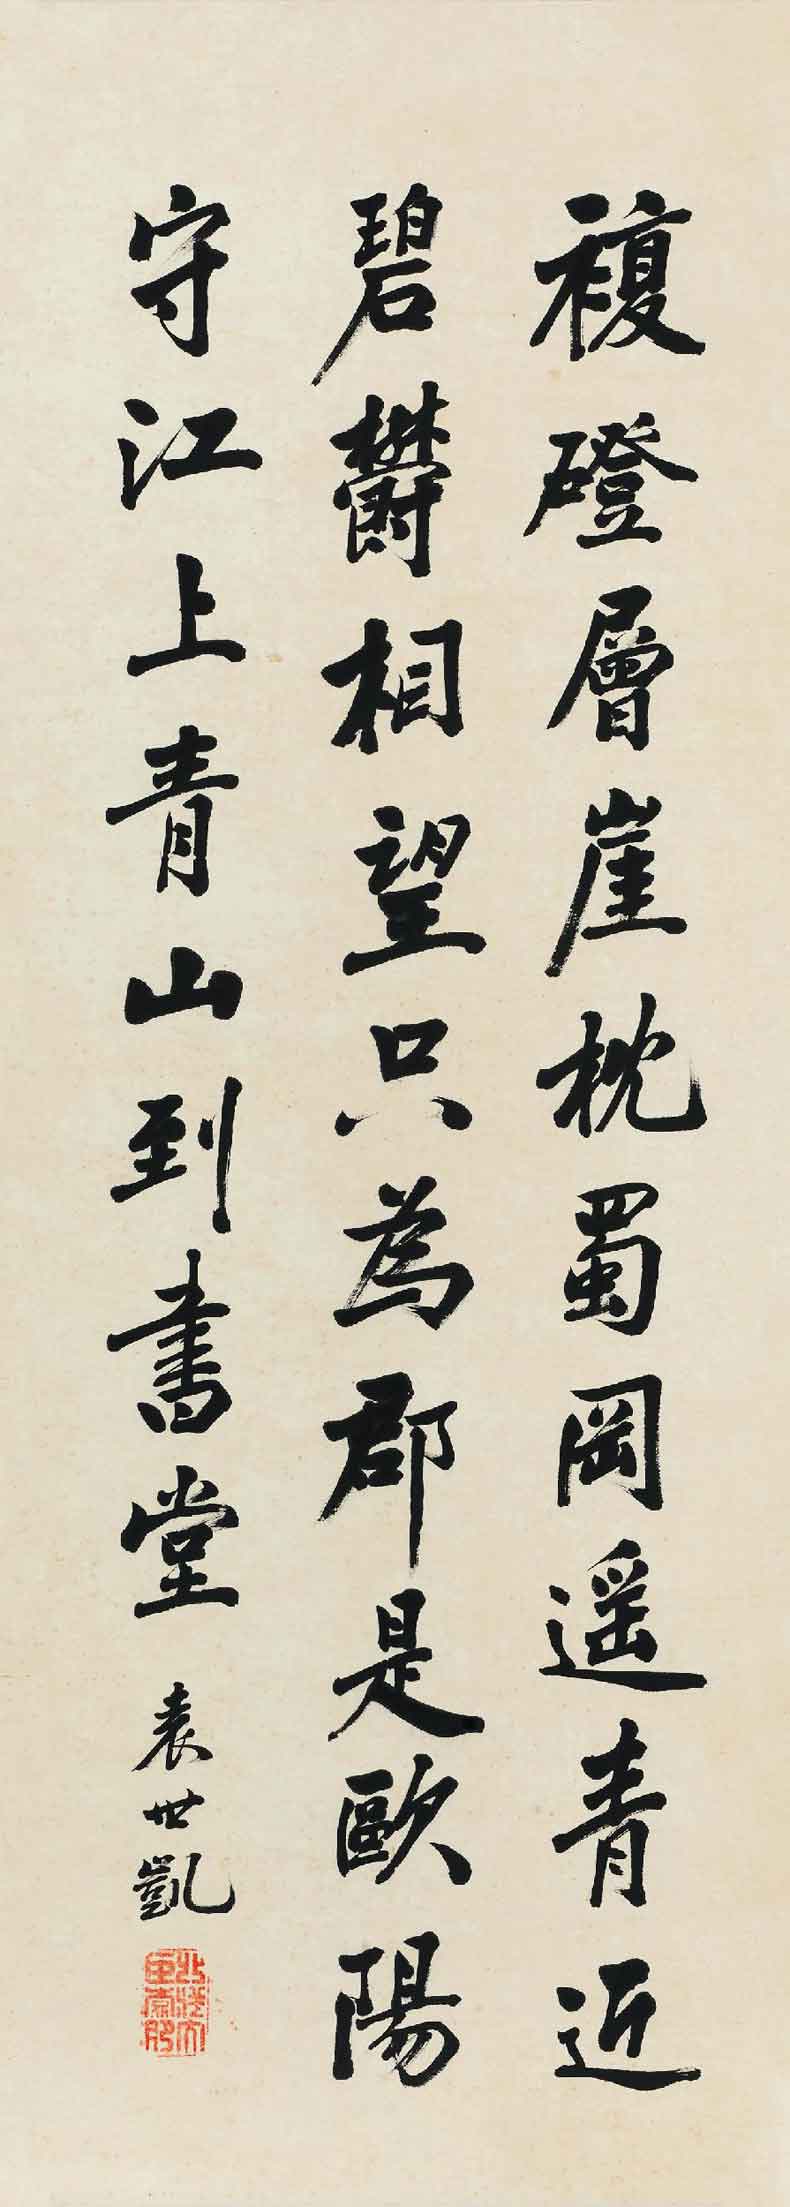 複磴層崖枕蜀岡遥青近
碧欝相望只為郡是歐陽
守江上青山到書堂
袁世凱